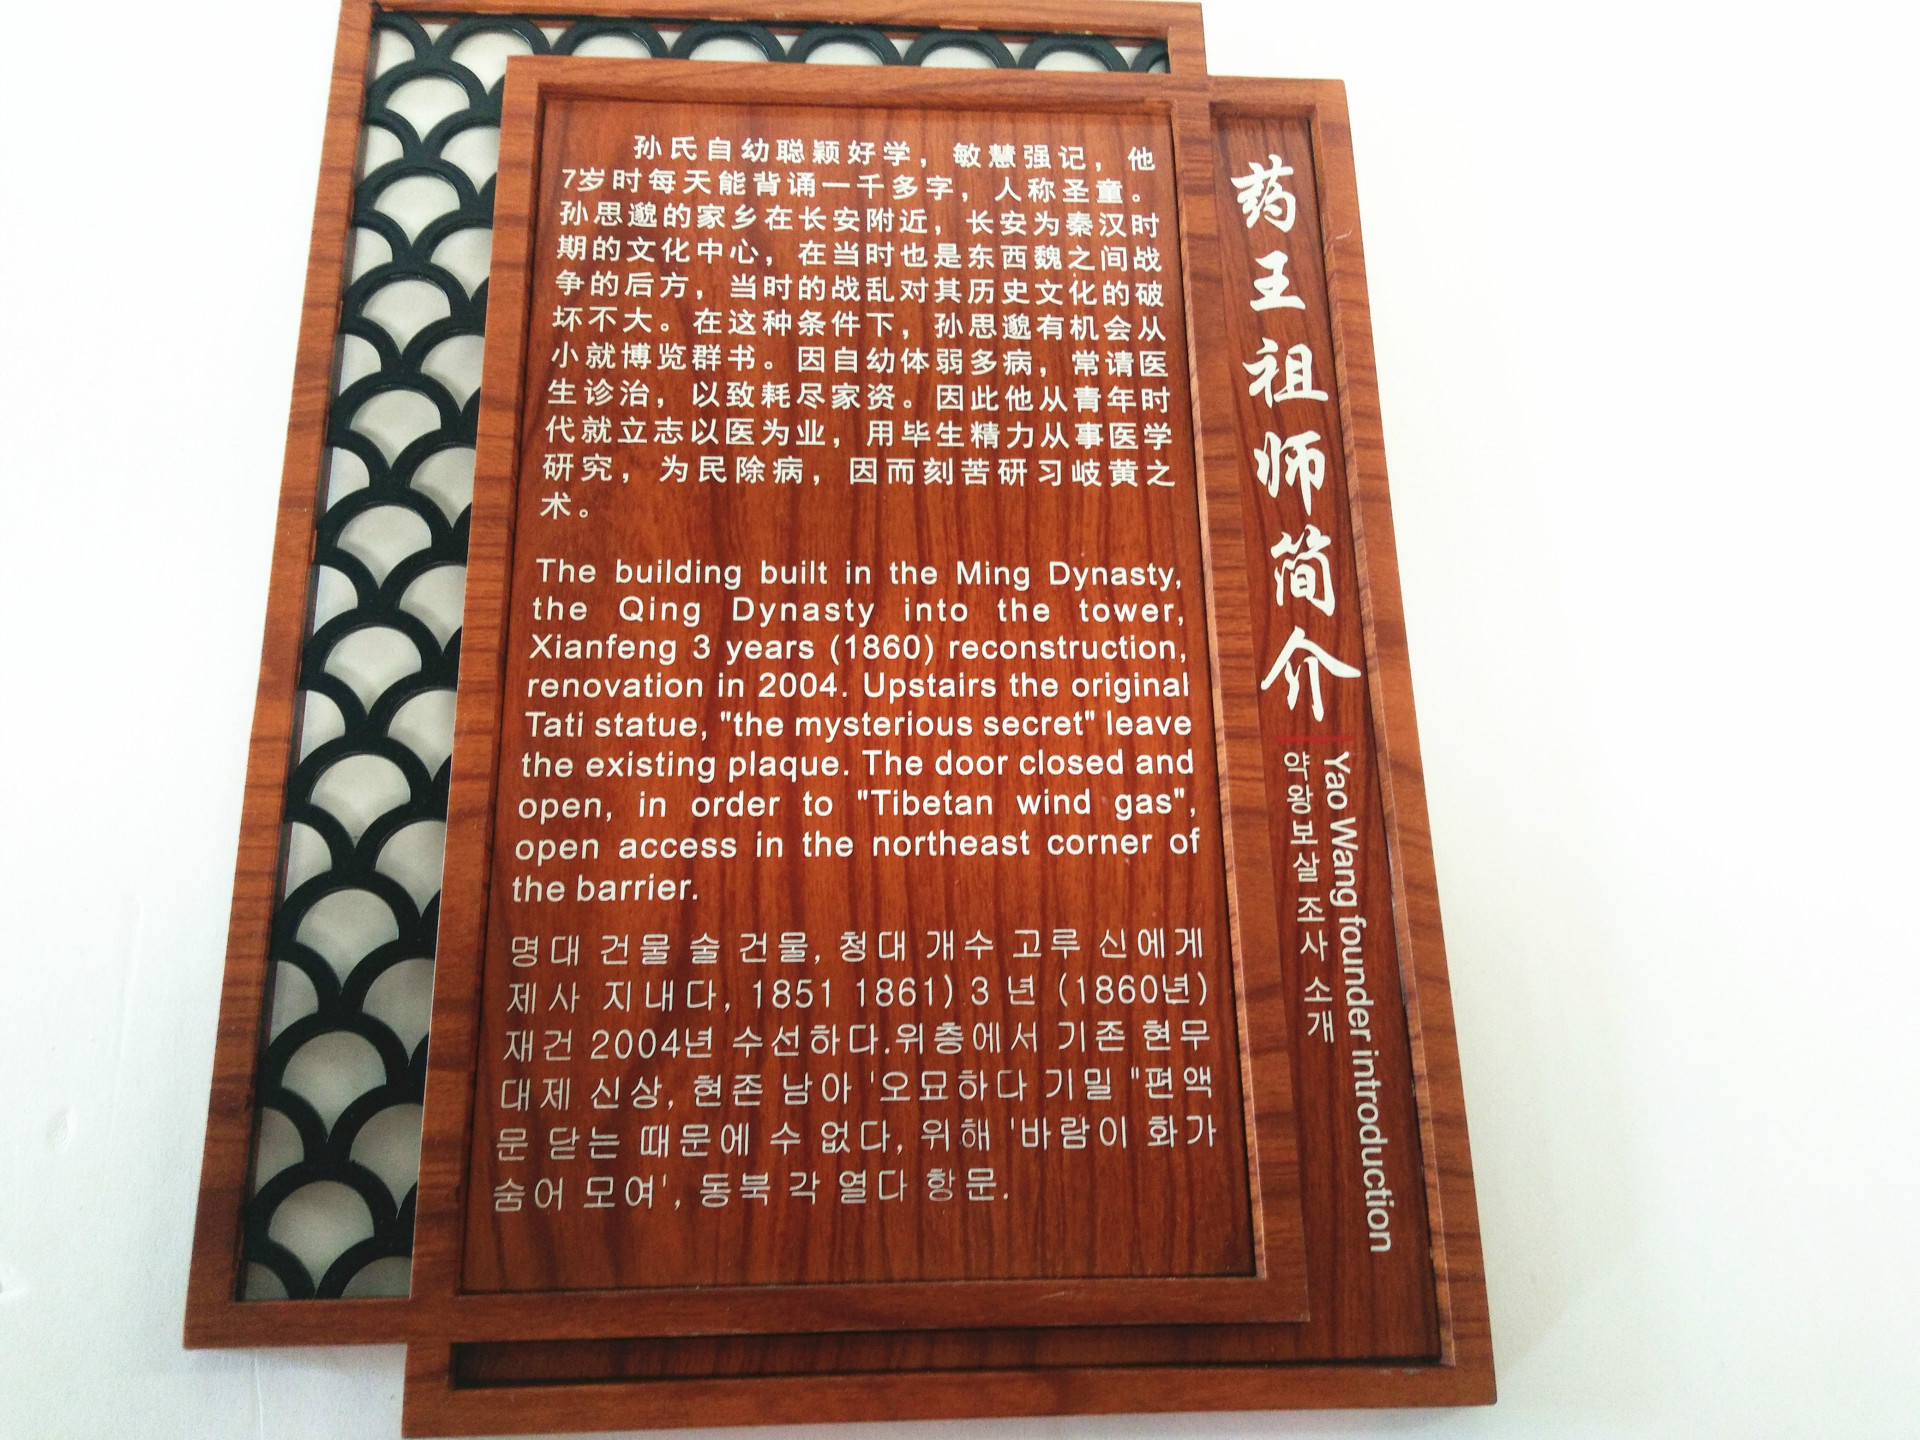 孙氏自幼聪颖好学，敏慧强记，他
7岁时每天能背诵一千多字，人称圣童。
孙思邈的家乡在长安附近，长安为秦汉时
期的文化中心，在当时也是东西魏之间战
争的后方，当时的战乱对其历史文化的破
坏不大。在这种条件下，孙思邈有机会从
小就博览群书。因自幼体弱多病，常请医
生诊治，以致耗尽家资。因此他从青年时
代就立志以医为业，用毕生精力从事医学
研究，为民除病，因而刻苦研习岐黄之
术。
The building built in the Ming Dynasty,
the Qing Dynasty into the tower,
Xianfeng 3 years (1860) reconstruction,
renovation in 2004. Upstairs the original
Tati statue, "the mysterious secret" leave
the existing plaque. The door closed and
open, in order to "Tibetan wind gas",
open access in the northeast corner of
the barrier.
명대 건물 술 건물, 청대 개수 고루 신에게
제사 지내다, 1851 1861) 3 년 (1860년)
재건 2004년 수선하다.위층에서 기존 현무
대제 신상, 현존 남아 '오묘하다 기밀 "편액
문 닫는 때문에 수 없다, 위해 '바람이 화가
숨어 모여', 동북 각 열다 항문.
药王祖师简介
Yao Wang founder introduction
약왕보살 조사 소개